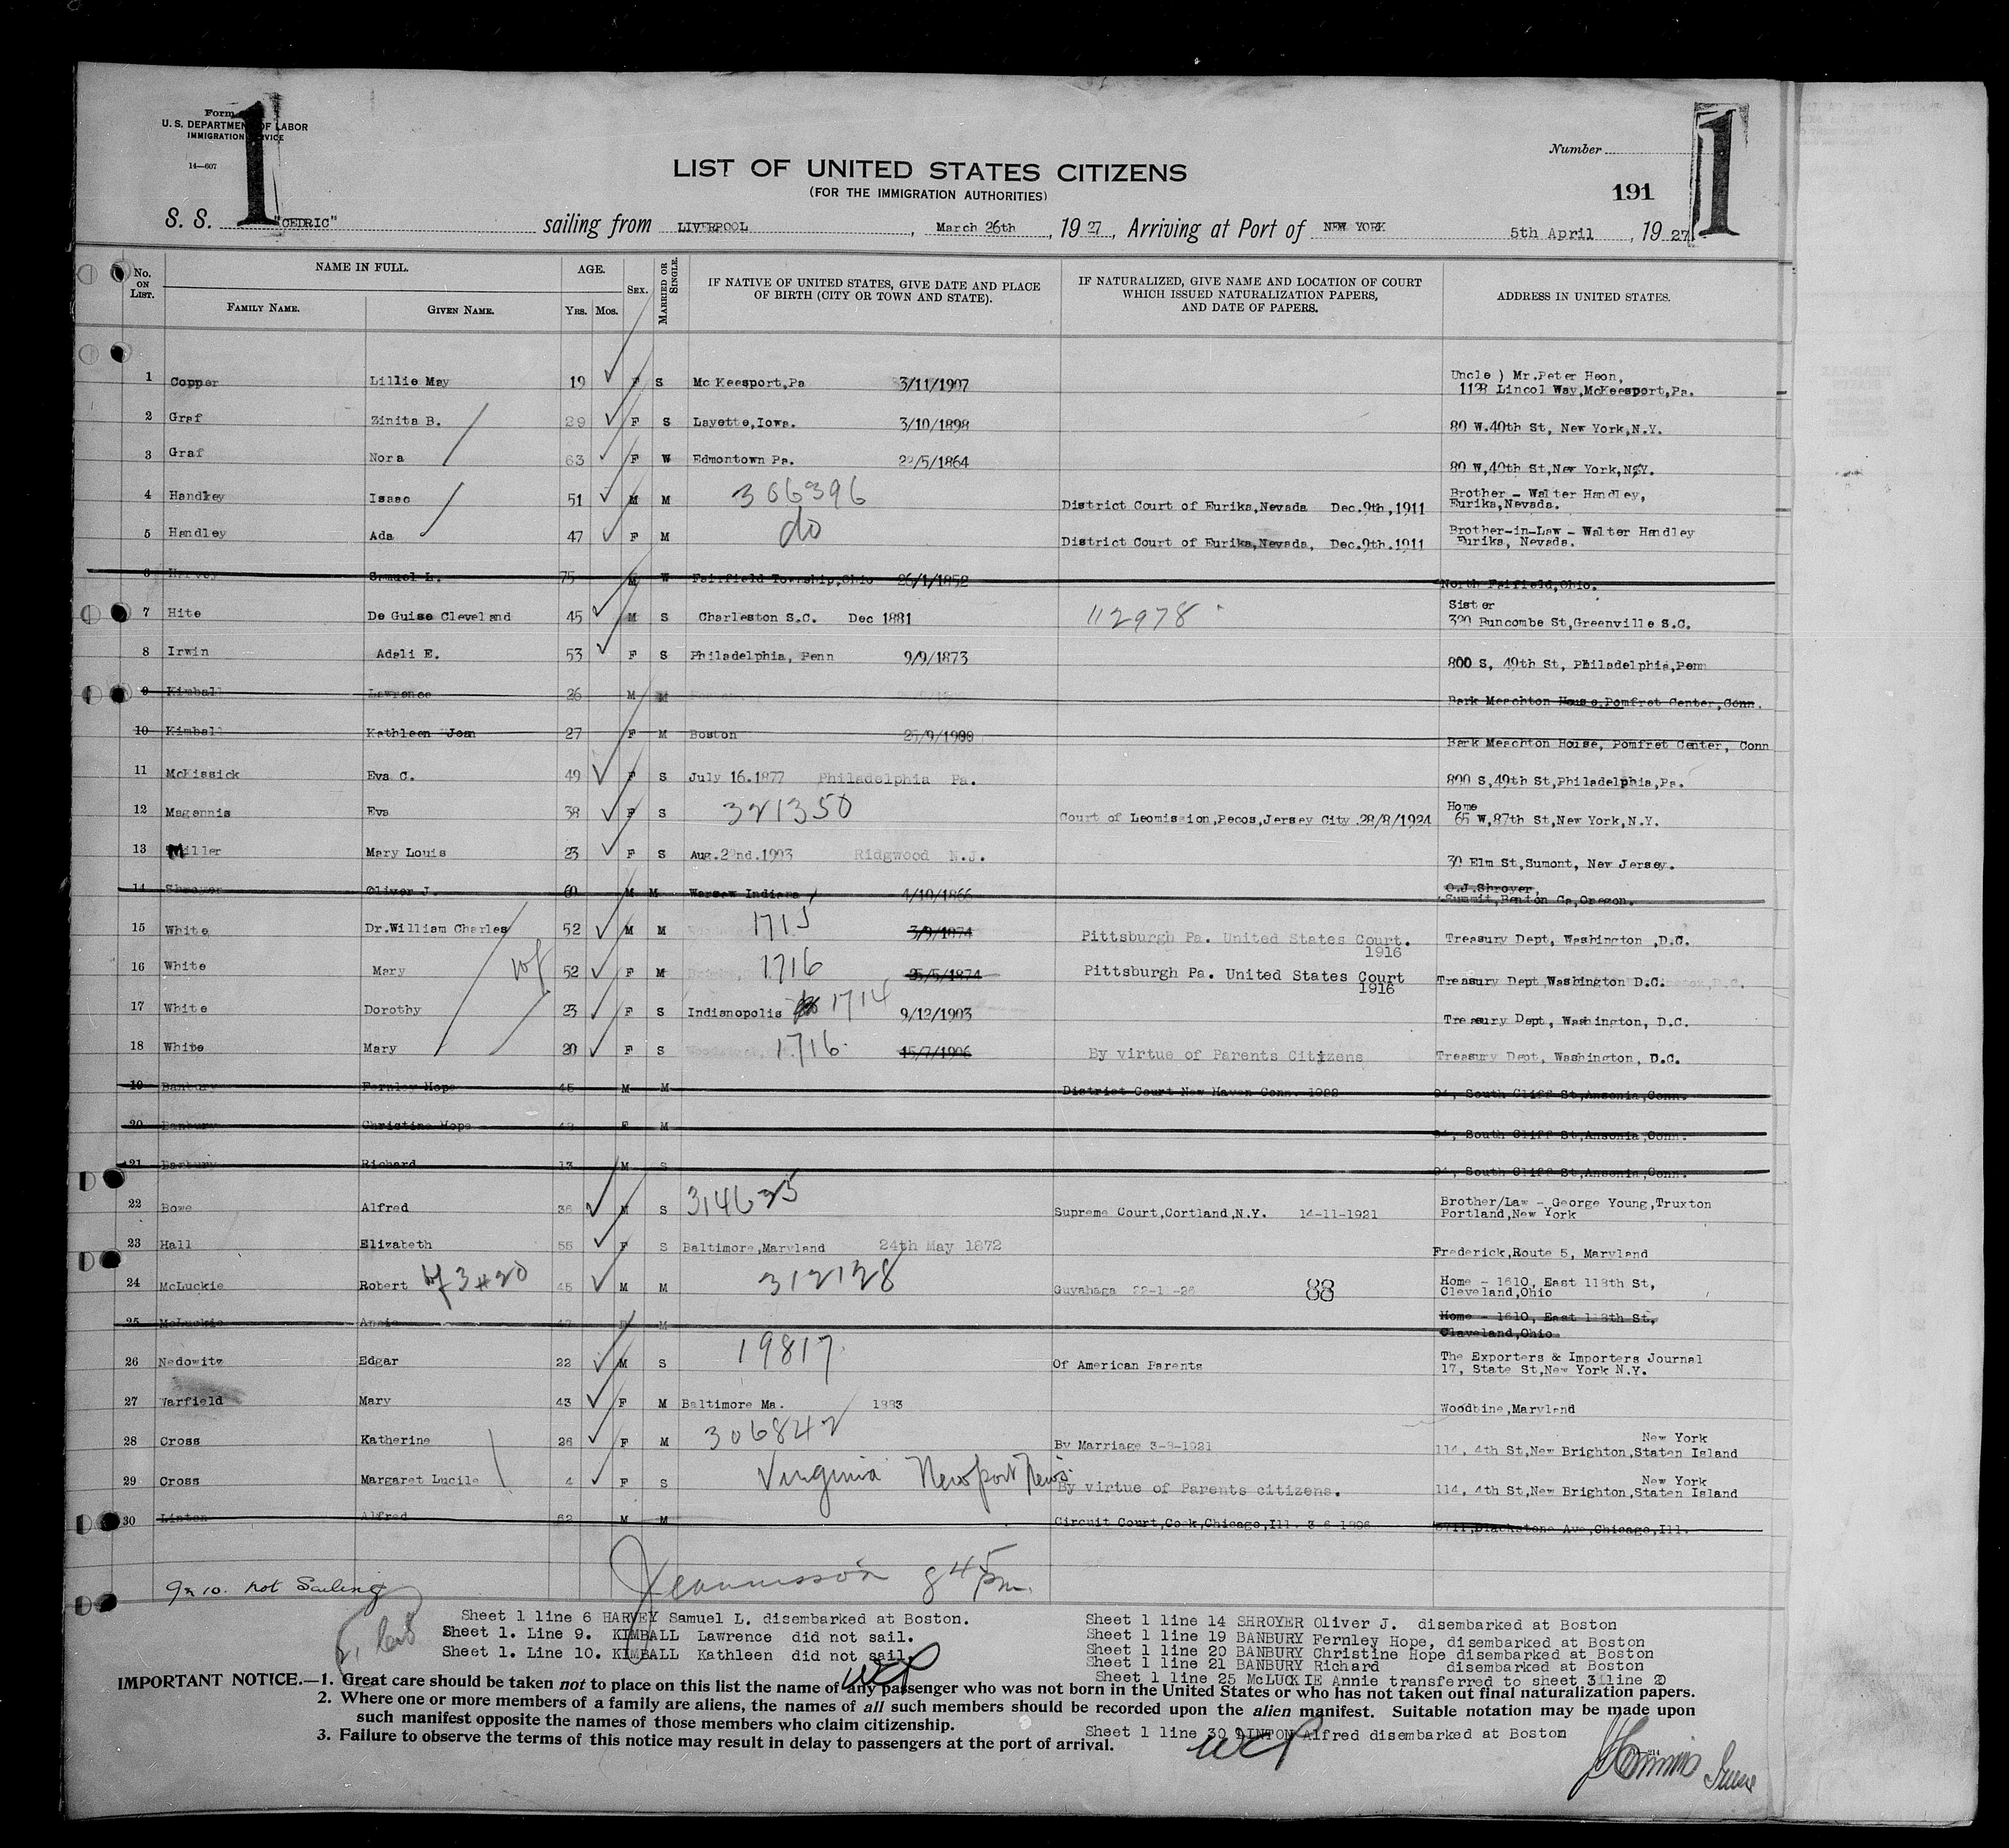 Form
U. S. DEPARTMENT OF LABOR
IMMIGRATION SERVICE
14—607
1
1
Number
191
LIST OF UNITED STATES CITIZENS
(FOR THE IMMIGRATION AUTHORITIES)
S. S. "CEDRIC" sailing from LIVERPOOL, March 26th, 1927, Arriving at Port of NEW YORK 5th April, 1927.
No. ON LIST. NAME IN FULL. FAMILY NAME. GIVEN NAME. AGE. YRS. MOS. SEX. MARRIED OR SINGLE. IF NATIVE OF UNITED STATES, GIVE DATE AND PLACE OF BIRTH (CITY OR TOWN AND STATE). IF NATURALIZED, GIVE NAME AND LOCATION OF COURT WHICH ISSUED NATURALIZATION PAPERS, AND DATE OF PAPERS. ADDRESS IN UNITED STATES.
1 Copper Lillie May 19 F S Mc Keesport,Pa 3/11/1907 Uncle ) Mr.Peter Heon, 1128 Lincol Way,McKeesport,Pa.
2 Graf Zinita B. 29 F S Layette,Iowa. 3/10/1898 80 W.40th St, New York,N.Y.
3 Graf Nora 63 F W Edmontown Pa. 22/5/1864 80 W,40th St,New York,N.Y.
4 Handley Isaac 51 M M 366396 District Court of Eurika,Nevada Dec.9th,1911 Brother - Walter Handley, Eurika,Nevada.
5 Handley Ada 47 F M do District Court of Eurika,Nevada, Dec.9th.1911 Brother-in-Law - Walter Handley Eurika, Nevada.
6 Harvey Samuel L. 75 M W Fairfield Township,Ohio 26/1/1852 North Fairfield,Ohio.
7 Hite De Guise Cleveland 45 M S Charleston S.C. Dec 1881 112978 Sister 320 Buncombe St,Greenville S.C.
8 Irwin Adeli E. 53 F S Philadelphia, Penn 9/9/1873 800 S, 49th St, Philadelphia,Penn
9 Kimball Lawrence 26 M M Bark Meachton House,Pomfret Center,Conn.
10 Kimball Kathleen Joan 27 F M Boston 25/9/1900 Bark Meachton House, Pomfret Center, Conn
11 McKissick Eva C. 49 F S July 16.1877 Philadelphia Pa. 800 S,49th St,Philadelphia,Pa.
12 Magennis Eva 38 F S 321350 Court of Leomission,Pecos,Jersey City 28/8/1924 Home 65 W,87th St,New York,N.Y.
13 Miller Mary Louis 23 F S Aug.22nd.1903 Ridgwood N.J. 30 Elm St,Sumont, New Jersey.
14 Shroyer Oliver J. 60 M M Warsaw Indiana 4/10/1866 O.J.Shroyer, Summit,Benton Co,Oregon.
15 White Dr.William Charles 52 M M 1715 3/9/1874 Pittsburgh Pa. United States Court. 1916 Treasury Dept, Washington ,D.C.
16 White Mary wf 52 F M 1716 25/5/1874 Pittsburgh Pa. United States Court 1916 Treasury Dept Washington D.C.
17 White Dorothy 23 F S Indianopolis 1714 9/12/1903 Treasury Dept, Washington, D.C.
18 White Mary 20 F S 1716 15/7/1906 By virtue of Parents Citizens Treasury Dept, Washington, D.C.
19 Banbury Fernley Hope 45 M M District Court New Haven Conn. 1922 94, South Cliff St,Ansonia,Conn.
20 Banbury Christine Hope F M 94, South Cliff St,Ansonia,Conn.
21 Banbury Richard 13 M S 94, South Cliff St,Ansonia,Conn.
22 Bowe Alfred 36 M S 314625 Supreme Court,Cortland,N.Y. 14-11-1921 Brother/Law - George Young,Truxton Portland,New York
23 Hall Elizabeth 55 F S Baltimore,Maryland 24th May 1872 Frederick,Route 5, Maryland
24 McLuckie Robert wf 3#20 45 M M 312128 Guyahaga 88 Home - 1610, East 118th St, Cleveland,Ohio
25 McLuckie Annie F M Home - 1610, East 118th St, Cleveland,Ohio
26 Nedowitz Edgar 22 M S 19817 Of American Parents The Exporters & Importers Journal 17, State St,New York N.Y.
27 Warfield Mary 43 F M Baltimore Ma. 1883 Woodbine,Maryland
28 Cross Katherine 26 F M 306842 By Marriage 3-8-1921 New York 114, 4th St,New Brighton,Staten Island
29 Cross Margaret Lucile 4 F S Virginia Newport News By virtue of Parents citizens. New York 114, 4th St,New Brighton,Staten Island
30 Linton Alfred 62 M M Circuit Court,Cook,Chicago,Ill. 3-6-1896 Blackstone Ave,Chicago,Ill.
9 & 10. not Sailing
8 45 pm.
Sheet 1 line 6 HARVEY Samuel L. disembarked at Boston.
Sheet 1. Line 9. KIMBALL Lawrence did not sail.
Sheet 1. Line 10. KIMBALL Kathleen did not sail.
Sheet 1 line 14 SHROYER Oliver J. disembarked at Boston
Sheet 1 line 19 BANBURY Fernley Hope, disembarked at Boston
Sheet 1 line 20 BANBURY Christine Hope disembarked at Boston
Sheet 1 line 21 BANBURY Richard disembarked at Boston
Sheet 1 line 25 McLUCKIE Annie transferred to sheet 3 line 20
IMPORTANT NOTICE.—1. Great care should be taken not to place on this list the name of any passenger who was not born in the United States or who has not taken out final naturalization papers.
2. Where one or more members of a family are aliens, the names of all such members should be recorded upon the alien manifest. Suitable notation may be made upon
such manifest opposite the names of those members who claim citizenship.
3. Failure to observe the terms of this notice may result in delay to passengers at the port of arrival.
Sheet 1 line 30 LINTON Alfred disembarked at Boston